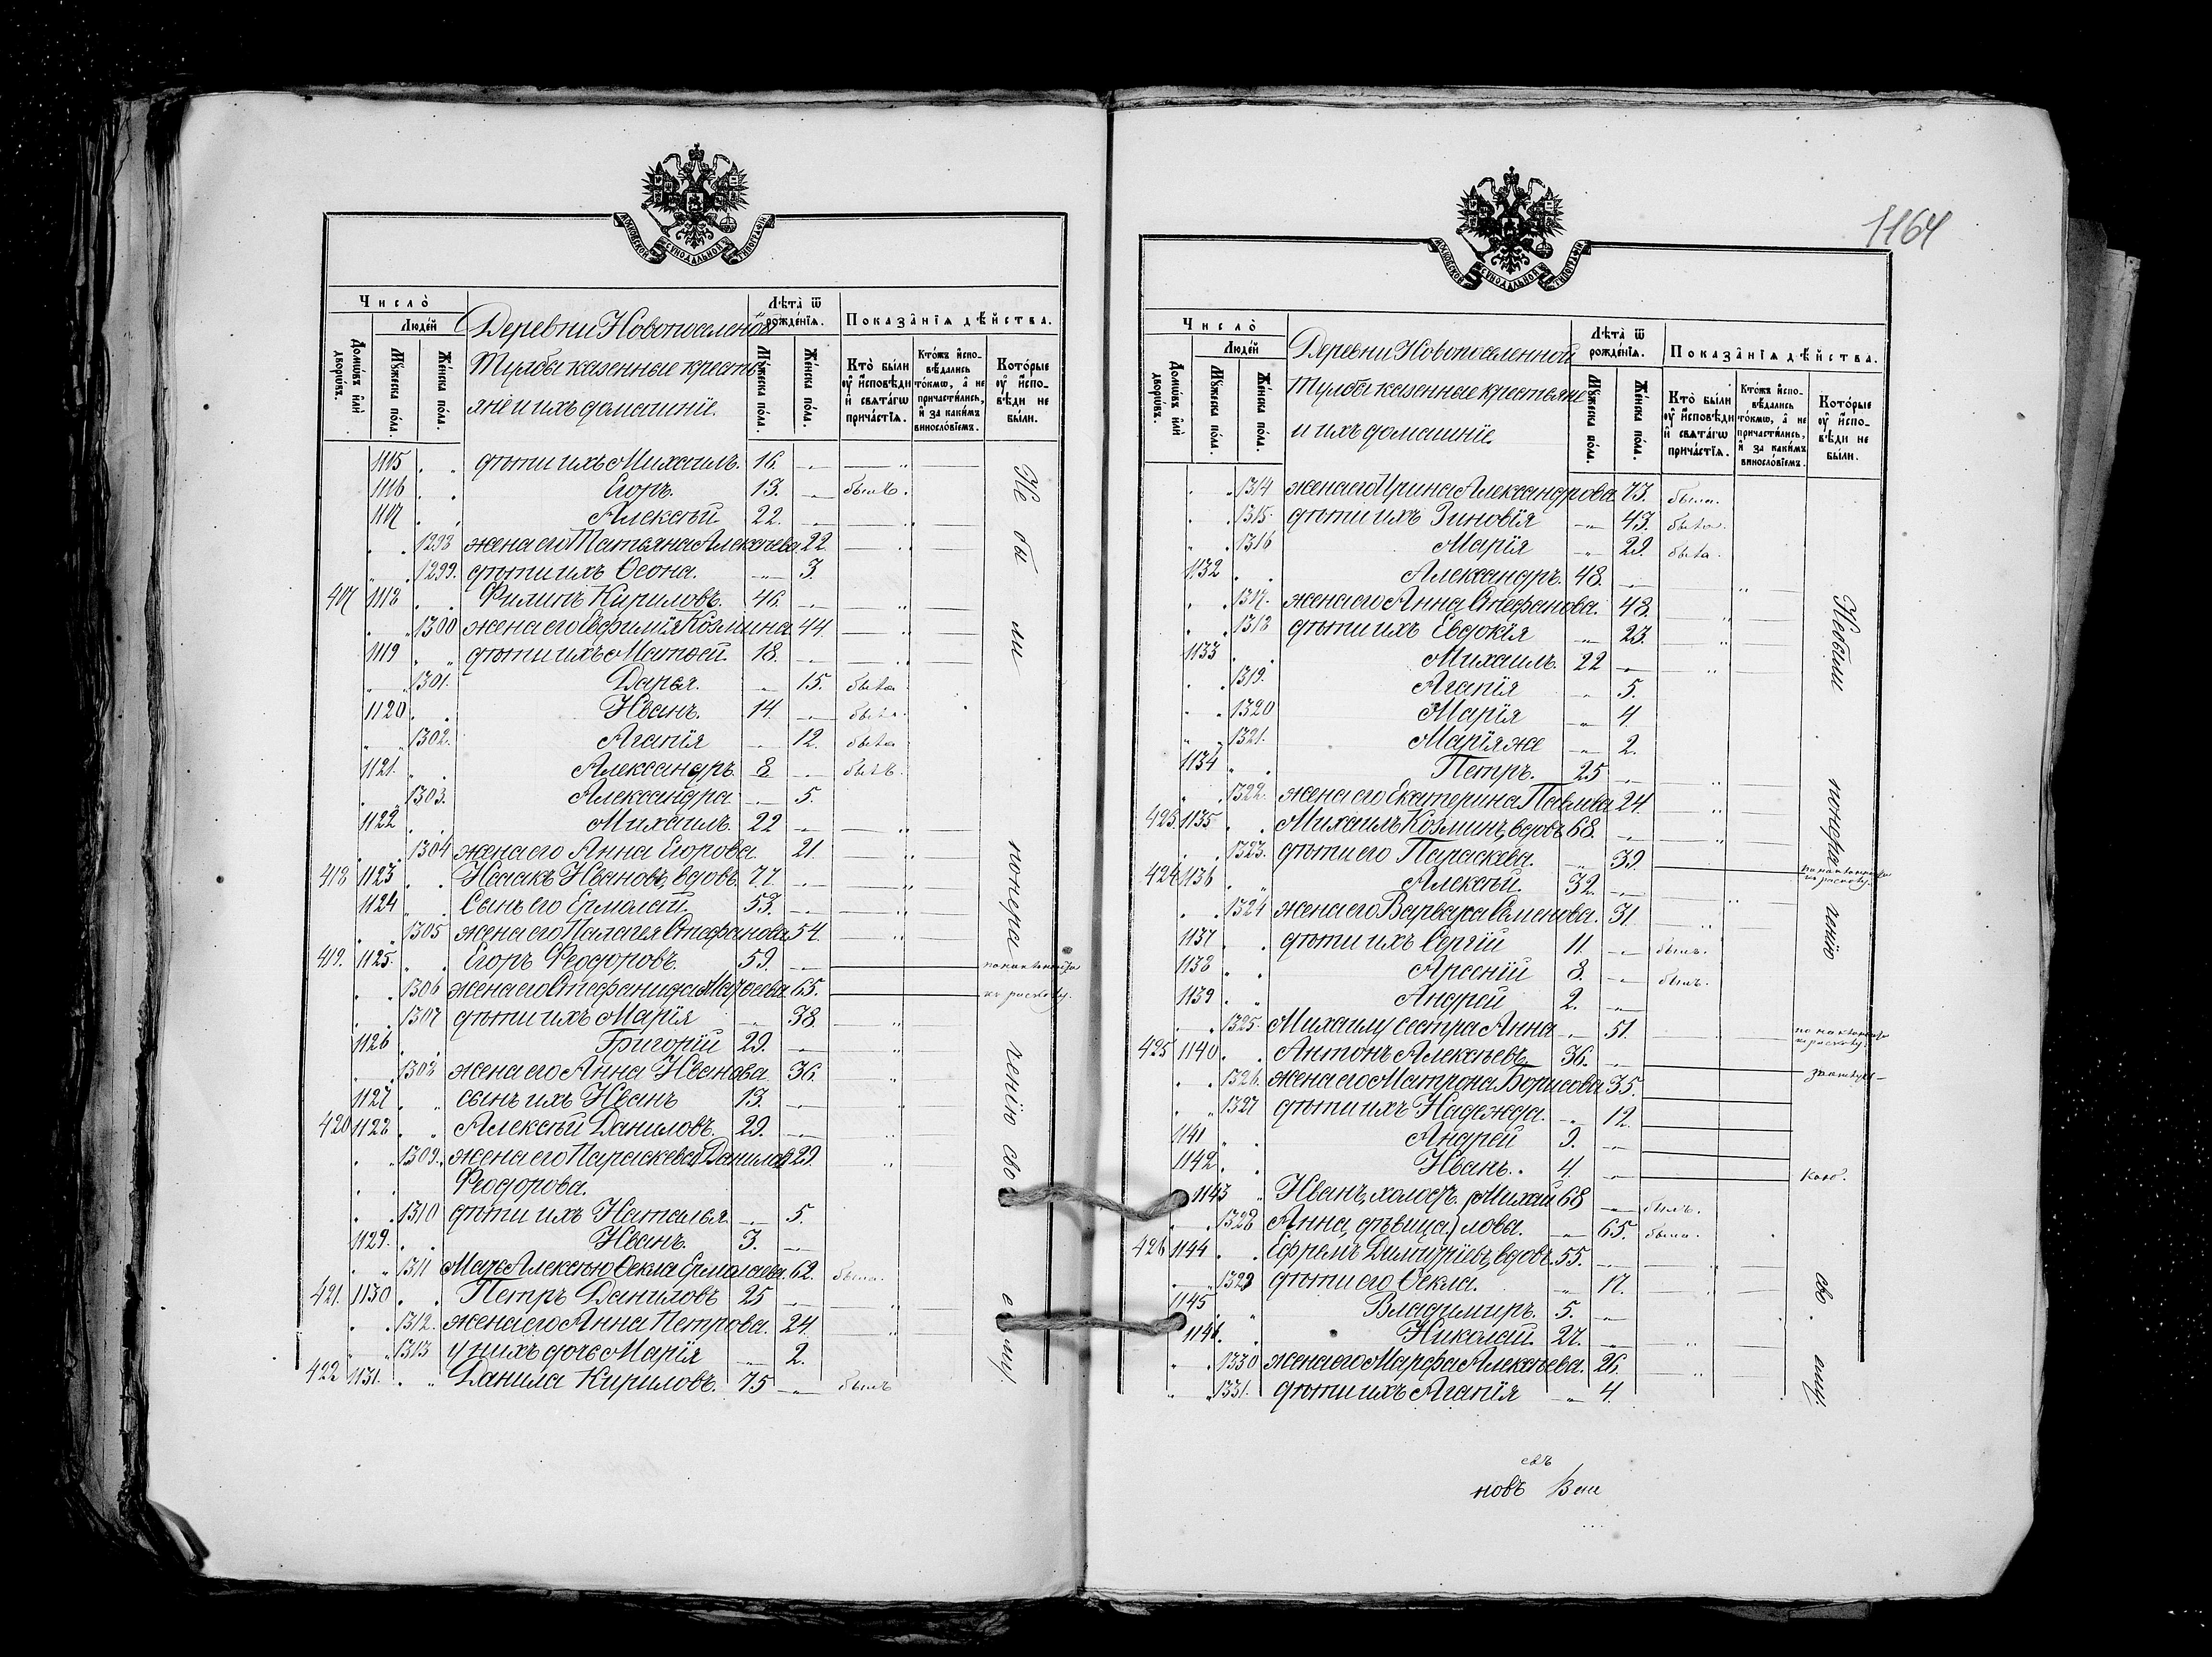 МОСКОВСКОЙ СѴНОДАЛЬНОЙ ТИПОГРАФІИ
Число̀
Людей
Домѡвъ и҆лѝ дворѡвъ.
Мꙋжеска пола.
Женска пола.
Деревни Новопоселенной
Тумбы казенные крестья
яне и ихъ домашніе.
Лѣта̀ ѿ рожденїѧ.
Мꙋжеска пола.
Женска пола.
Показанїѧ дѣйства.
Кто̀ были оу҆ и҆сповѣди и҆ свѧтагѡ причастїѧ.
Ктожъ и҆сповѣдались токмѡ, а҆ не причастились, и҆ за какимъ винословїемъ.
Которые оу҆ и҆споведи не были.
1115 дѣти ихъ Михаилъ. 16.
1116 Егоръ. 13. былъ.
1117 Алексѣй 22.
1298 жена его Татьяна Алексѣева 22.
1299. дѣти ихъ Ѳеона. 3.
417 1118 Филипъ Кириловъ. 46.
1300 жена его Евфимія Козмина 44.
1119 дѣти ихъ Матѳей. 18.
1301. Дарья. 15. была
1120 Иванъ. 14. былъ.
1302. Агапія 12. была
1121. Александръ. 8 былъ.
1303. Александра 5.
1122 Михаилъ. 22
1304 жена его Анна Егорова. 21.
418 1123 Исаакъ Ивановъ, вдовъ. 77.
1124 Сынъ его Ермолай. 53.
1305 жена его Палагея Стефанова 54.
419. 1125. Егоръ Ѳеодоровъ. 59.
1306 жена его Стефанида Марковна 65. къ расколу.
1307 дѣти ихъ Марія 38.
1126 Григорій 29.
1308 жена его Анна Иванова 36.
1127 сынъ ихъ Иванъ 13.
420 1128 Алексѣй Даниловъ. 29.
1309. жена его Параскева Данилова 29.
Ѳеодорова.
1310 дѣти ихъ Наталья. 5.
1129. Иванъ. 3.
1311 Мать Алексѣю Ѳекла Ермолаева 62. была.
421. 1130 Петръ Даниловъ 25
1312. жена его Анна Петрова. 24.
1313 у нихъ дочь Марія 2.
422 1131. Данила Кириловъ. 75 былъ
Не были по нераченію своему.
1164
МОСКОВСКОЙ СѴНОДАЛЬНОЙ ТИПОГРАФІИ
Число̀
Людей
Домѡвъ и҆лѝ дворѡвъ.
Мꙋжеска пола.
Женска пола.
Деревни Новопоселенной
Тумбы казенные крестьяне
и ихъ домашніе.
Лѣта̀ ѿ рожденїѧ.
Мꙋжеска пола.
Женска пола.
Показанїѧ дѣйства.
Кто̀ были оу҆ и҆сповѣди и҆ свѧтагѡ причастїѧ.
Ктожъ и҆сповѣдались токмѡ, а҆ не причастились, и҆ за какимъ винословїемъ.
Которые оу҆ и҆споведи не были.
1314 жена его Ирина Александрова 73. была.
1315. дѣти ихъ Зиновія 43. была.
1316 Марія 29. была.
1132 Александръ. 48.
1317. жена его Анна Стефанова. 48.
1318 дѣти ихъ Евдокія 23.
1133 Михаилъ. 22
1319. Агапія 5.
1320 Марія 4
1321. Марія же 2.
1134 Петръ. 25
1322. жена его Екатерина Павлова 24.
423. 1135 Михаилъ Козминъ, вдовъ 68.
1323. дѣти его Параскева. 39. по наклонности къ расколу.
424 1136 Алексѣй. 32.
1324 жена его Варвара Семенова. 31.
1137 дѣти ихъ Сергій 11. былъ.
1138 Арсеній 8. былъ.
1139 Андрей 2.
1325. Михаилу сестра Анна 51. по наклонности къ расколу.
425 1140 Антонъ Алексѣевъ. 36.
1326. жена его Матрона Борисова 35.
1327 дѣти ихъ Надежда. 12.
1141 Андрей 9.
1142 Иванъ. 4
1143 Иванъ, холост. Михай 68 былъ.
1328 Анна, дѣвица лова. 65. была.
426 1144 Ефремъ Димитріевъ, вдовъ. 55.
1329 дѣти его Ѳекла. 17.
1145 Владимиръ. 5.
1146 Николай. 27.
1330 жена его Марфа Алексѣева. 26.
1331. дѣти ихъ Агапія 4.
Не были по нерачению своему.
новъ